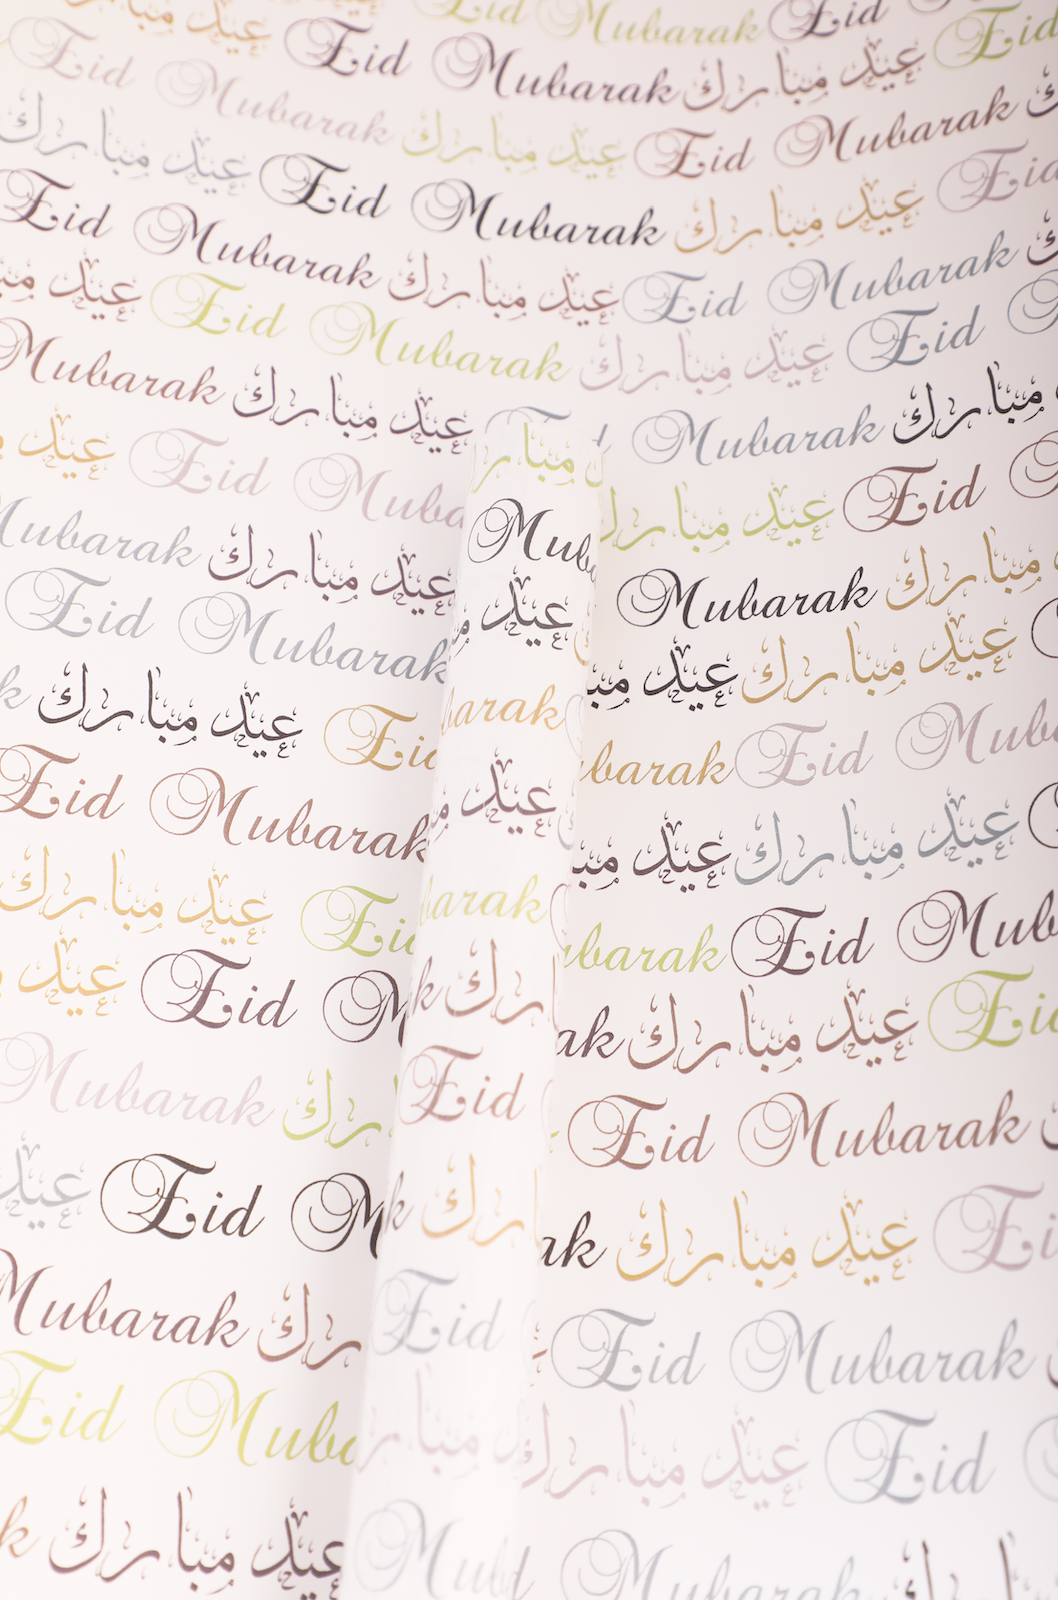 Eid Mubarak Eid
عيد Eid Mubarak عيد مبارك Eid
Eid Mubarak عيد مبارك Eid Mubarak
عيد مبارك Eid Mubarak عيد مبارك Eid
Eid Mubarak عيد مبارك Eid Mubarak
عيد Eid Mubarak عيد مبارك Eid
Mubarak عيد مبارك Mubarak مبارك
عيد Eid عيد مبارك Eid
Mubarak عيد مبارك Mubarak مبارك
Eid Mubarak عيد عيد عيد مبارك
عيد مبارك Eid Mubarak Eid
Eid Mubarak عيد عيد عيد مبارك
عيد مبارك Mubarak Eid
عيد Eid عيد مبارك
Mubarak Eid Eid Mubarak
عيد Eid عيد مبارك
Mubarak Eid Eid Mubarak
Eid عيد مبارك Eid
عيد مبارك Mubarak